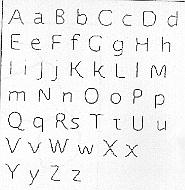 A a B b C c D d
E e F f G g H h
I i J j K k L l M
m N n O o P p
Q q R s T t U u
V v W w X x
Y y Z z